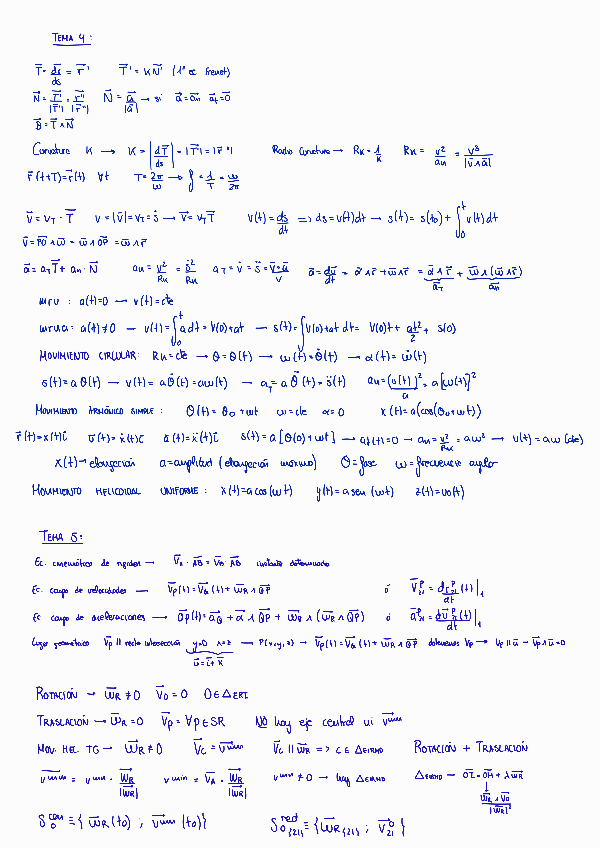 TEMA 4:
T⃗ = dr⃗/ds = r⃗' T⃗' = KN⃗ (1ª ec Frenet)
N⃗ = T⃗'/|T⃗'| = r⃗''/|r⃗''| N⃗ = a⃗/|a⃗| → si a⃗ = a⃗n aT = 0
B⃗ = T⃗ ∧ N⃗
Curvatura K → K = |dT⃗/ds| = |T⃗'| = |r⃗''| Radio Curvatura → Rk = 1/K Rk = v²/an = v³/|v⃗∧a⃗|
r⃗(t+T) = r⃗(t) ∀t T = 2π/ω → f = 1/T = ω/2π
v⃗ = vT · T⃗ v = |v⃗| = vT = ṡ → v⃗ = vT T⃗ v(t) = ds/dt ⇒ ds = v(t)dt → s(t) = s(t0) + ∫₀ᵗ v(t)dt
v⃗ = PO⃗ ∧ ω⃗ = ω⃗ ∧ OP⃗ = ω⃗ ∧ r⃗
a⃗ = aT T⃗ + an · N⃗ an = v²/Rk = ṡ²/Rk aT = v̇ = s̈ = v⃗·a⃗/v a⃗ = dv⃗/dt = α⃗∧r⃗ + ω⃗∧ṙ⃗ = α⃗∧r⃗ + ω⃗∧(ω⃗∧r⃗)
a⃗T a⃗n
mru : a(t)=0 → v(t)=cte
mrua: a(t)≠0 → v(t)=∫₀ᵗ a dt = V(0)+at → s(t)=∫V(0)+at dt = V(0)t + at²/2 + s(0)
MOVIMIENTO CIRCULAR: Rk=cte → θ=θ(t) → ω(t)=θ̇(t) → α(t)=ω̇(t)
s(t)=a θ(t) → v(t)= aθ̇(t)=aω(t) → aT = a θ̈(t)=s̈(t) an=(v(t))²/a = a[ω(t)]²
MOVIMIENTO ARMÓNICO SIMPLE: θ(t)= θ0+ωt ω=cte α=0 x(t)=a(cos(θ0+ωt))
r⃗(t)=x(t)i⃗ v⃗(t)=ẋ(t)i⃗ a⃗(t)=ẍ(t)i⃗ s(t)=a[θ(0)+ωt] → at(t)=0 → an=v²/Rk=aω² → v(t)=aω(cte)
x(t)→elongación a=amplitud (elongación máxima) θ=fase ω=frecuencia angular
MOVIMIENTO HELICOIDAL UNIFORME: x(t)=a cos(ωt) y(t)=a sen(ωt) z(t)=v0(t)
TEMA 5:
Ec. cinemática de rígidos → V⃗A · AB⃗ = V⃗B · AB⃗ instante determinado
Ec. campo de velocidades → V⃗P(t)=V⃗Q(t)+ω⃗R∧QP⃗ ó V⃗ᴾ21 = dr⃗ᴾ21/dt (t)|1
Ec campo de aceleraciones → a⃗P(t)=a⃗Q + α⃗∧QP⃗ + ω⃗R∧(ω⃗R∧QP⃗) ó a⃗ᴾ21 = dv⃗ᴾ21/dt (t)|1
Lugar geométrico V⃗P ∥ recta intersección y=0 x=z → P(x,y,z) → V⃗P(t)=V⃗Q(t)+ω⃗R∧QP⃗ obtenemos VP → VP ∥ u⃗ → V⃗P∧u⃗=0
u⃗=i⃗+k⃗
ROTACIÓN → ω⃗R ≠ 0 V⃗O = 0 O∈ΔEIRI
TRASLACIÓN → ω⃗R = 0 V⃗P = ∀P∈SR NO hay eje central ni v⃗ᵐⁱⁿ
MOV. HEL TG → ω⃗R ≠ 0 V⃗C = v⃗ᵐⁱⁿ V⃗C ∥ ω⃗R ⇒ C∈ΔEIRMD ROTACIÓN + TRASLACIÓN
v⃗ᵐⁱⁿ = vᵐⁱⁿ · ω⃗R/|ω⃗R| vᵐⁱⁿ = V⃗A · ω⃗R/|ω⃗R| vᵐⁱⁿ ≠ 0 → hay ΔEIRMD ΔEIRMD → OI⃗ = OH⃗ + λω⃗R
ω⃗R∧V⃗O/|ω⃗R|²
S₀ᶜᵃⁿ ≡ { ω⃗R(t0) ; v⃗ᵐⁱⁿ(t0) } S₀{21}ʳᵉᵈ ≡ { ω⃗R{21} ; v⃗⁰21 }